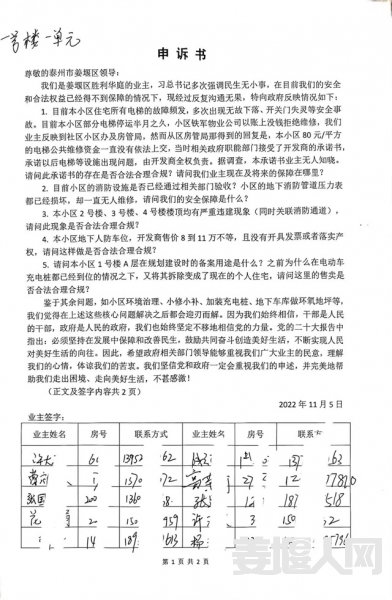 一号楼一单元
申诉书
尊敬的泰州市姜堰区领导:
我们是姜堰区胜利华庭的业主,习总书记多次强调民生无小事,在目前我们的安全
和合法权益已经得不到保障的情况下,现经过反复沟通无果,特向政府反映情况如下:
1. 目前本小区住宅所有电梯的故障频发,多次出现无故下落、开关门失灵等安全事
故。目前本小区部分电梯停运半月之久,小区轶军物业公司以账上没钱拒绝维修,我们
业主反映到社区小区办及房管局,然而从区房管局那得到的回复是,本小区 80 元/平方
的电梯公共维修资金一直没有依法上交,当时相关政府职能部门接受了开发商的承诺书,
承诺以后电梯等设施出现问题,由开发商全权负责。据调查,本承诺书业主无人知晓。
请问此承诺书的存在是否合法合理合规?请问我们业主现在及将来的保障在哪里?
2. 目前小区的消防设施是否已经通过相关部门验收?小区的地下消防管道压力表
都已经损坏,却一直无人维修,请问我们的安全保障是什么?
3. 本小区 2 号楼、3 号楼、4 号楼楼顶均有严重违建现象(同时关联消防通道),
请问此现象是否合法合理合规?
4. 本小区地下人防车位,开发商售价 8 到 11 万不等,且没有开具发票或者落实产
权,请问这样做是否合法合理合规?
5. 请问本小区 1 号楼 A 层在规划建设时的备案用途是什么?之前为什么在电动车
充电桩都已经到位的情况之下,又将其拆除变成了现在的个人住宅,请问这里的售卖是
否合法合理合规?
鉴于其余问题,如小区环境治理、小修小补、加装充电桩、地下车库做环氧地坪等,
我们觉得在上述这些核心问题解决之后都会迎刃而解。因为我们始终相信,干部是人民
的干部,政府是人民的政府,我们也始终坚定不移地相信党的力量。党的二十大报告中
指出:必须坚持在发展中保障和改善民生,鼓励共同奋斗创造美好生活,不断实现人民
对美好生活的向往。因此,希望政府相关部门领导能够重视我们广大业主的民意,理解
我们的心情,体谅我们的苦衷。我们坚信党和政府一定会重视我们的申述,并完美地帮
助我们走出困境、走向美好生活,不甚感激!
(正文及签字内容共 2 页)
2022 年 11 月 5 日
业主签字:
业主姓名 房号 联系方式 业主姓名 房号 联系方
第 1 页 共 2 页
姜堰人网